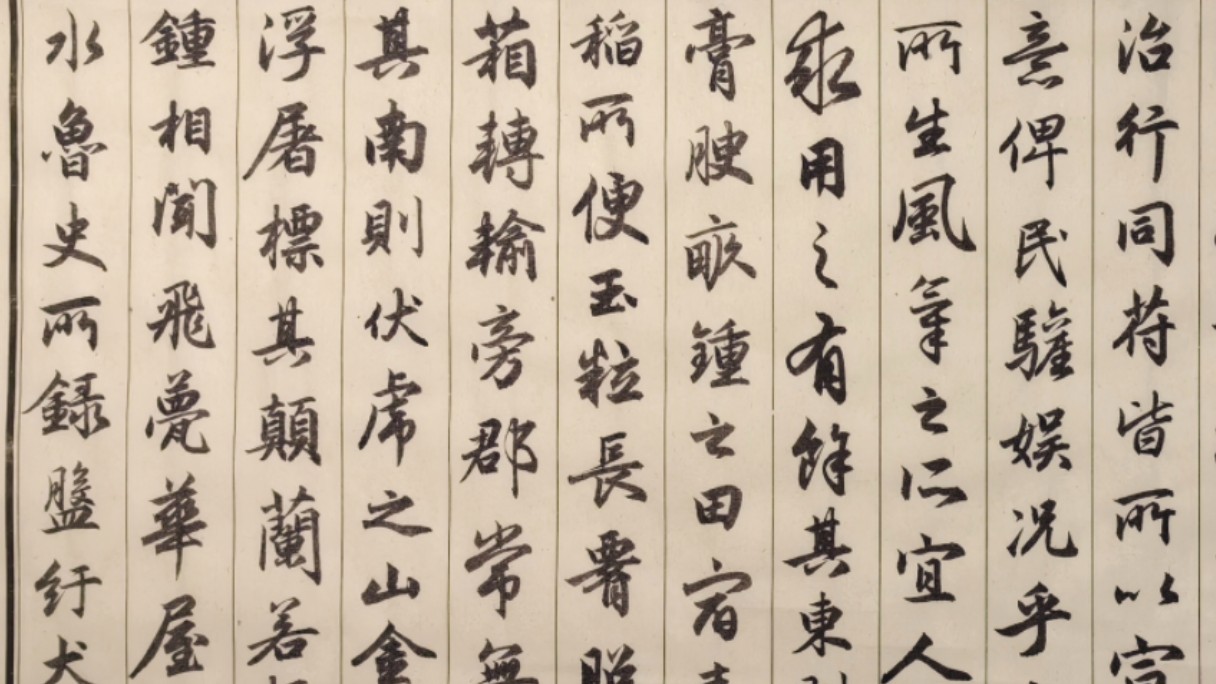 治行同苻皆所以宣
意俾民驩娱况乎
所生風氣之所宜人
求用之有餘其東
膏腴畝鍾之田宿
稲所便玉粒長𦞦
葙轉輸旁郡常無
其南則伏虎之山金
浮屠標其顛蘭若
鍾相聞飛甍華屋
水魯史所録盤紆